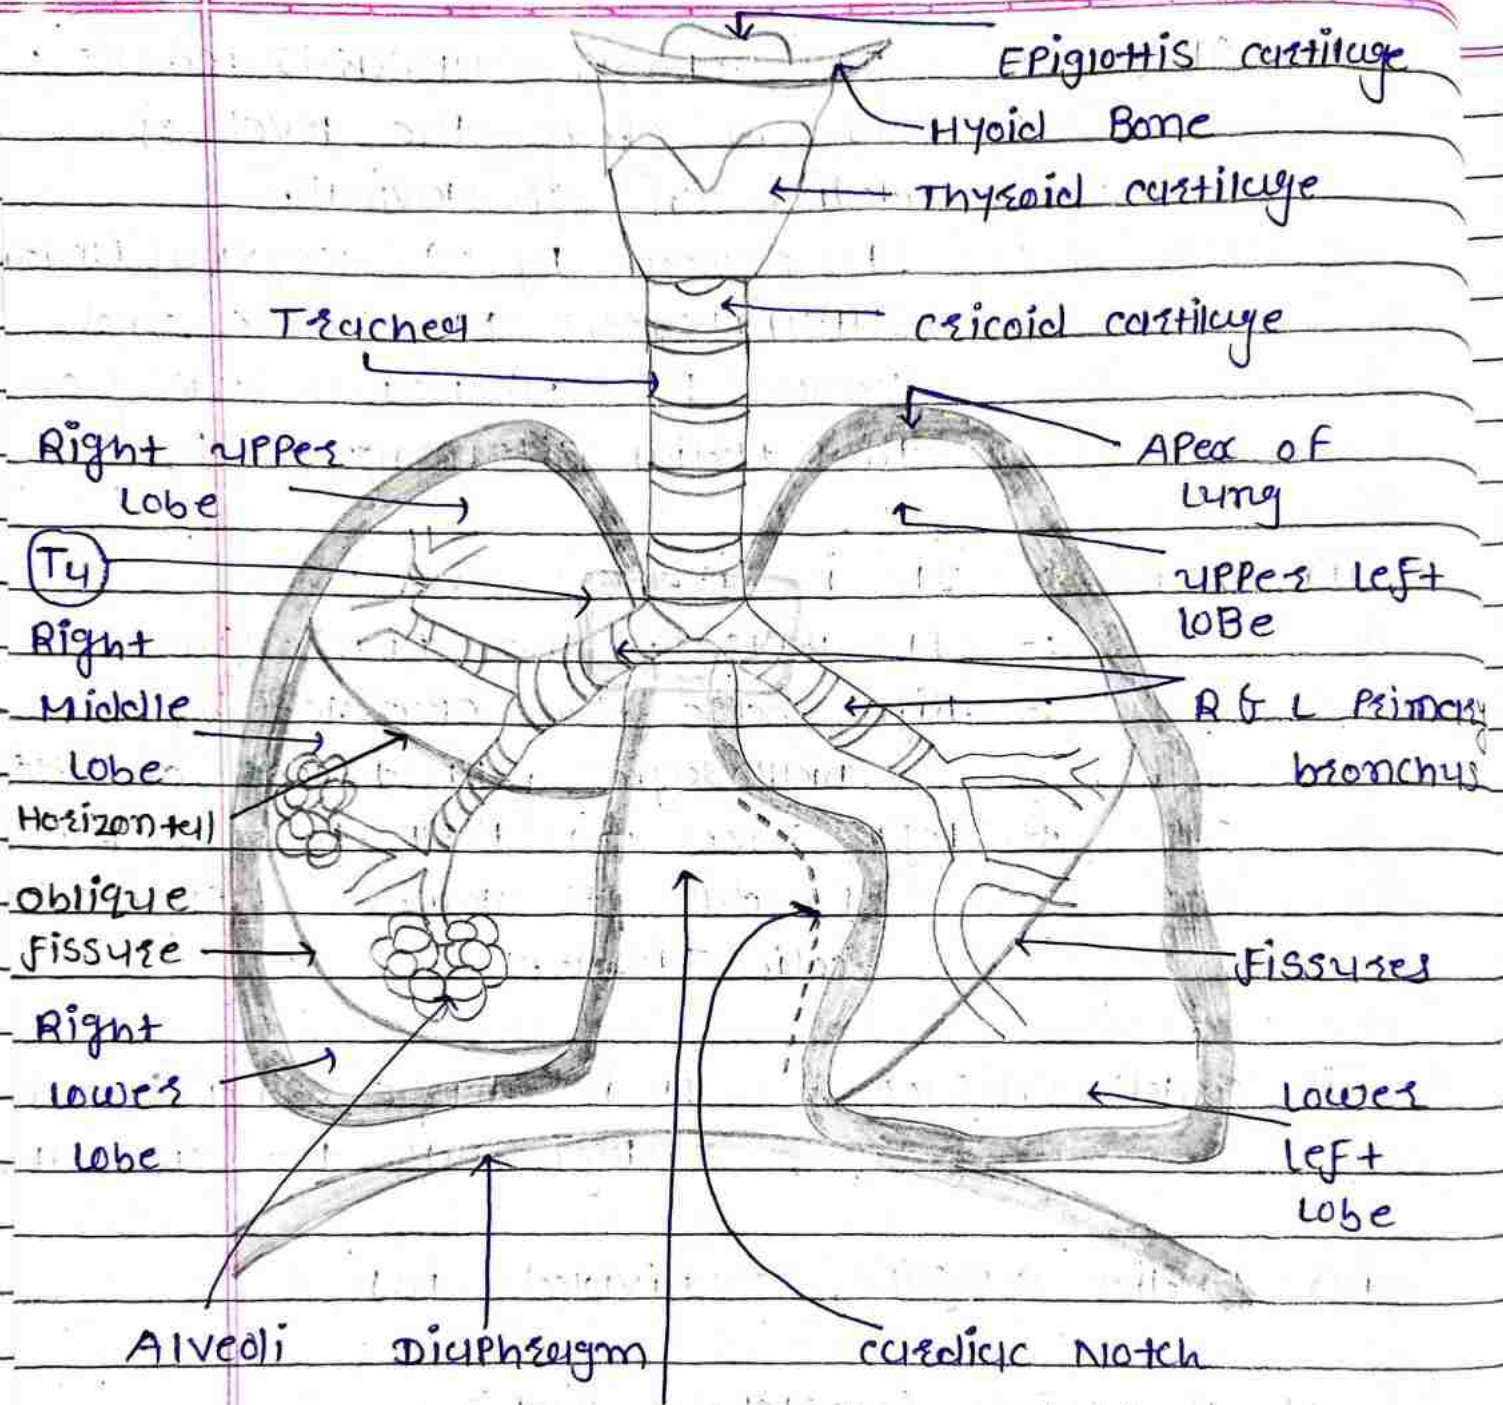 Epiglottis cartilage
Hyoid Bone
Thyroid cartilage
Trachea
cricoid cartilage
Right upper
lobe
Apex of
lung
T4
upper left
loBe
Right
Middle
lobe
R & L Primary
bronchus
Horizontal
oblique
fissure
fissures
Right
lower
lobe
lower
left
lobe
Alveoli
Diaphragm
cardiac Notch